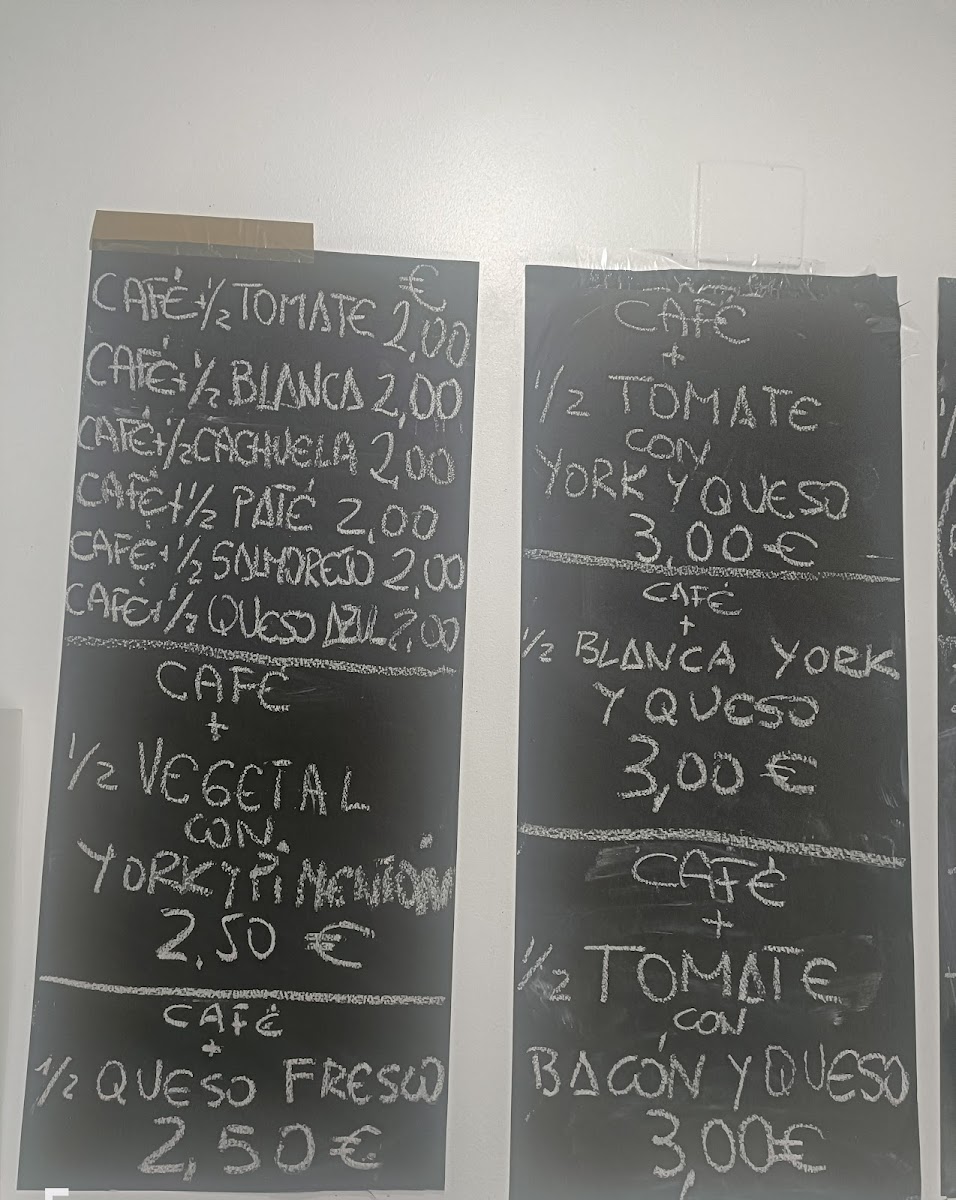 €
CAFÉ+1/2 TOMATE 2,00
CAFÉ+1/2 BLANCA 2,00
CAFÉ+1/2 CACHUELA 2,00
CAFÉ+1/2 PATÉ 2,00
CAFÉ+1/2 SALMOREJO 2,00
CAFÉ+1/2 QUESO AZUL 2,00
CAFÉ
+
1/2 VEGETAL
CON
YORK Y PIMENTÓN
2,50 €
CAFÉ
+
1/2 QUESO FRESCO
2,50 €
CAFÉ
+
1/2 TOMATE
CON
YORK Y QUESO
3,00 €
CAFÉ
+
1/2 BLANCA YORK
Y QUESO
3,00 €
CAFÉ
+
1/2 TOMATE
CON
BACÓN Y QUESO
3,00 €